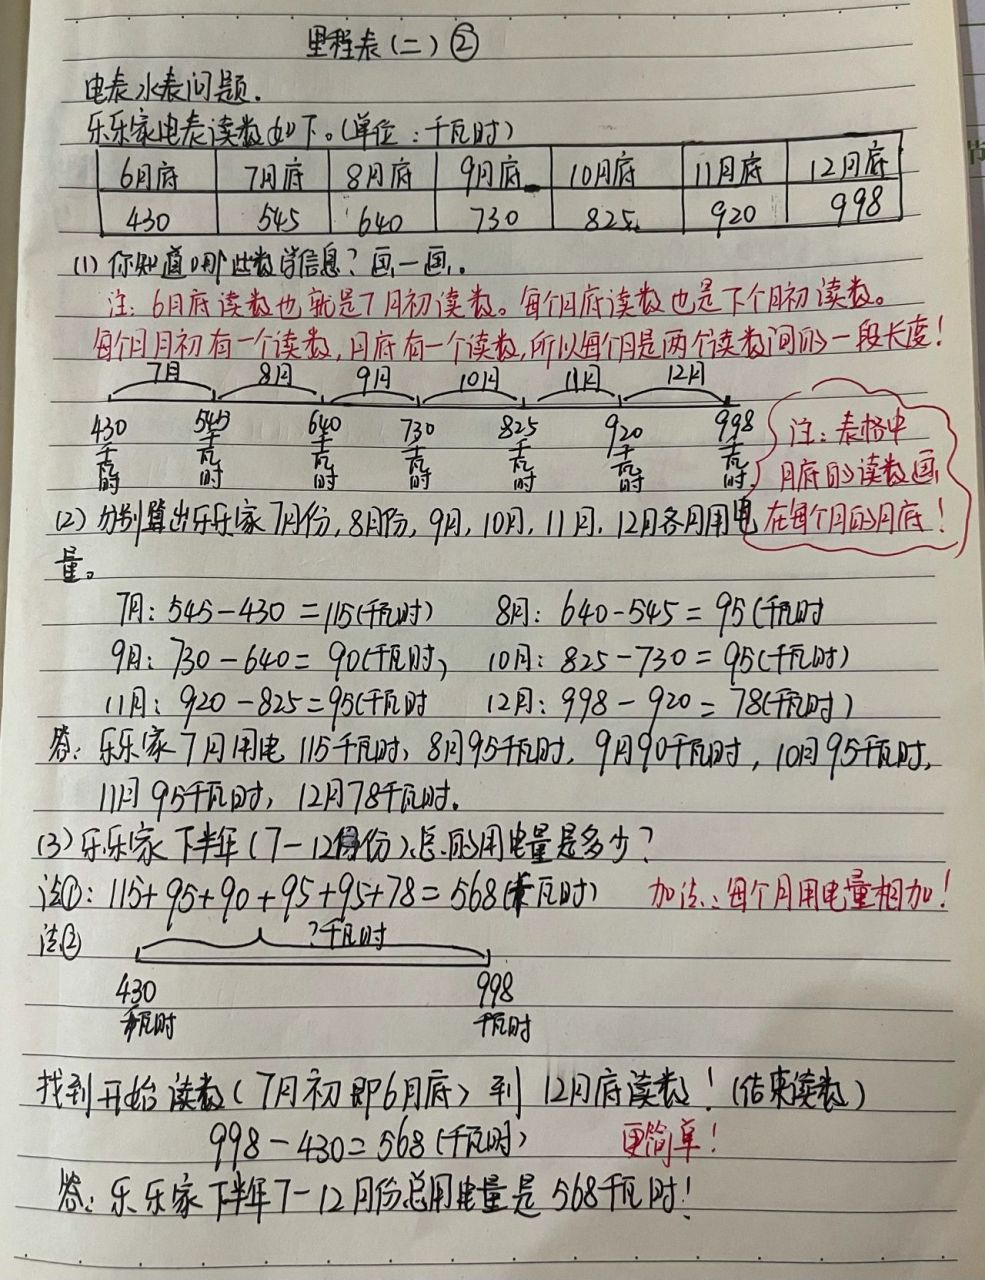 里程表(二)②
电表水表问题.
乐乐家电表读数如下。(单位:千瓦时)
6月底 7月底 8月底 9月底 10月底 11月底 12月底
430 545 640 730 825 920 998
(1)你知道哪些数学信息?画一画.
注:6月底读数也就是7月初读数。每个月底读数也是下个月初读数。
每个月月初有一个读数,月底有一个读数,所以每个月是两个读数间的一段长度!
7月 8月 9月 10月 11月 12月
430千瓦时 545千瓦时 640千瓦时 730千瓦时 825千瓦时 920千瓦时 998千瓦时
注:表格中
月底的读数画
在每个月的月底!
(2)分别算出乐乐家7月份,8月份,9月,10月,11月,12月各月用电
量。
7月:545-430=115(千瓦时) 8月:640-545=95(千瓦时
9月:730-640=90(千瓦时) 10月:825-730=95(千瓦时)
11月:920-825=95(千瓦时 12月:998-920=78(千瓦时)
答:乐乐家7月用电115千瓦时,8月95千瓦时,9月90千瓦时,10月95千瓦时,
11月95千瓦时,12月78千瓦时.
(3)乐乐家下半年(7-12月份)总的用电量是多少?
法①:115+95+90+95+95+78=568(千瓦时) 加法:每个月用电量相加!
法② ?千瓦时
430 998
千瓦时 千瓦时
找到开始读数(7月初即6月底)到12月底读数!(结束读数)
998-430=568(千瓦时) 更简单!
答:乐乐家下半年7-12月份总用电量是568千瓦时!